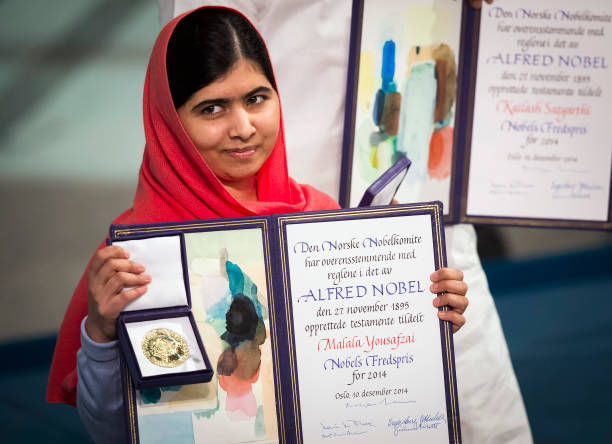 Den Norske Nobelkomite
har overensstemmende med
reglene i det av
ALFRED NOBEL
den 27 november 1895
opprettede testamente tildelt
Kailash Satyarthi
Nobels Fredspris
for 2014
Oslo, 10 desember 2014
Den Norske Nobelkomite
har overensstemmende med
reglene i det av
ALFRED NOBEL
den 27 november 1895
opprettede testamente tildelt
Malala Yousafzai
Nobels Fredspris
for 2014
Oslo, 10 desember 2014